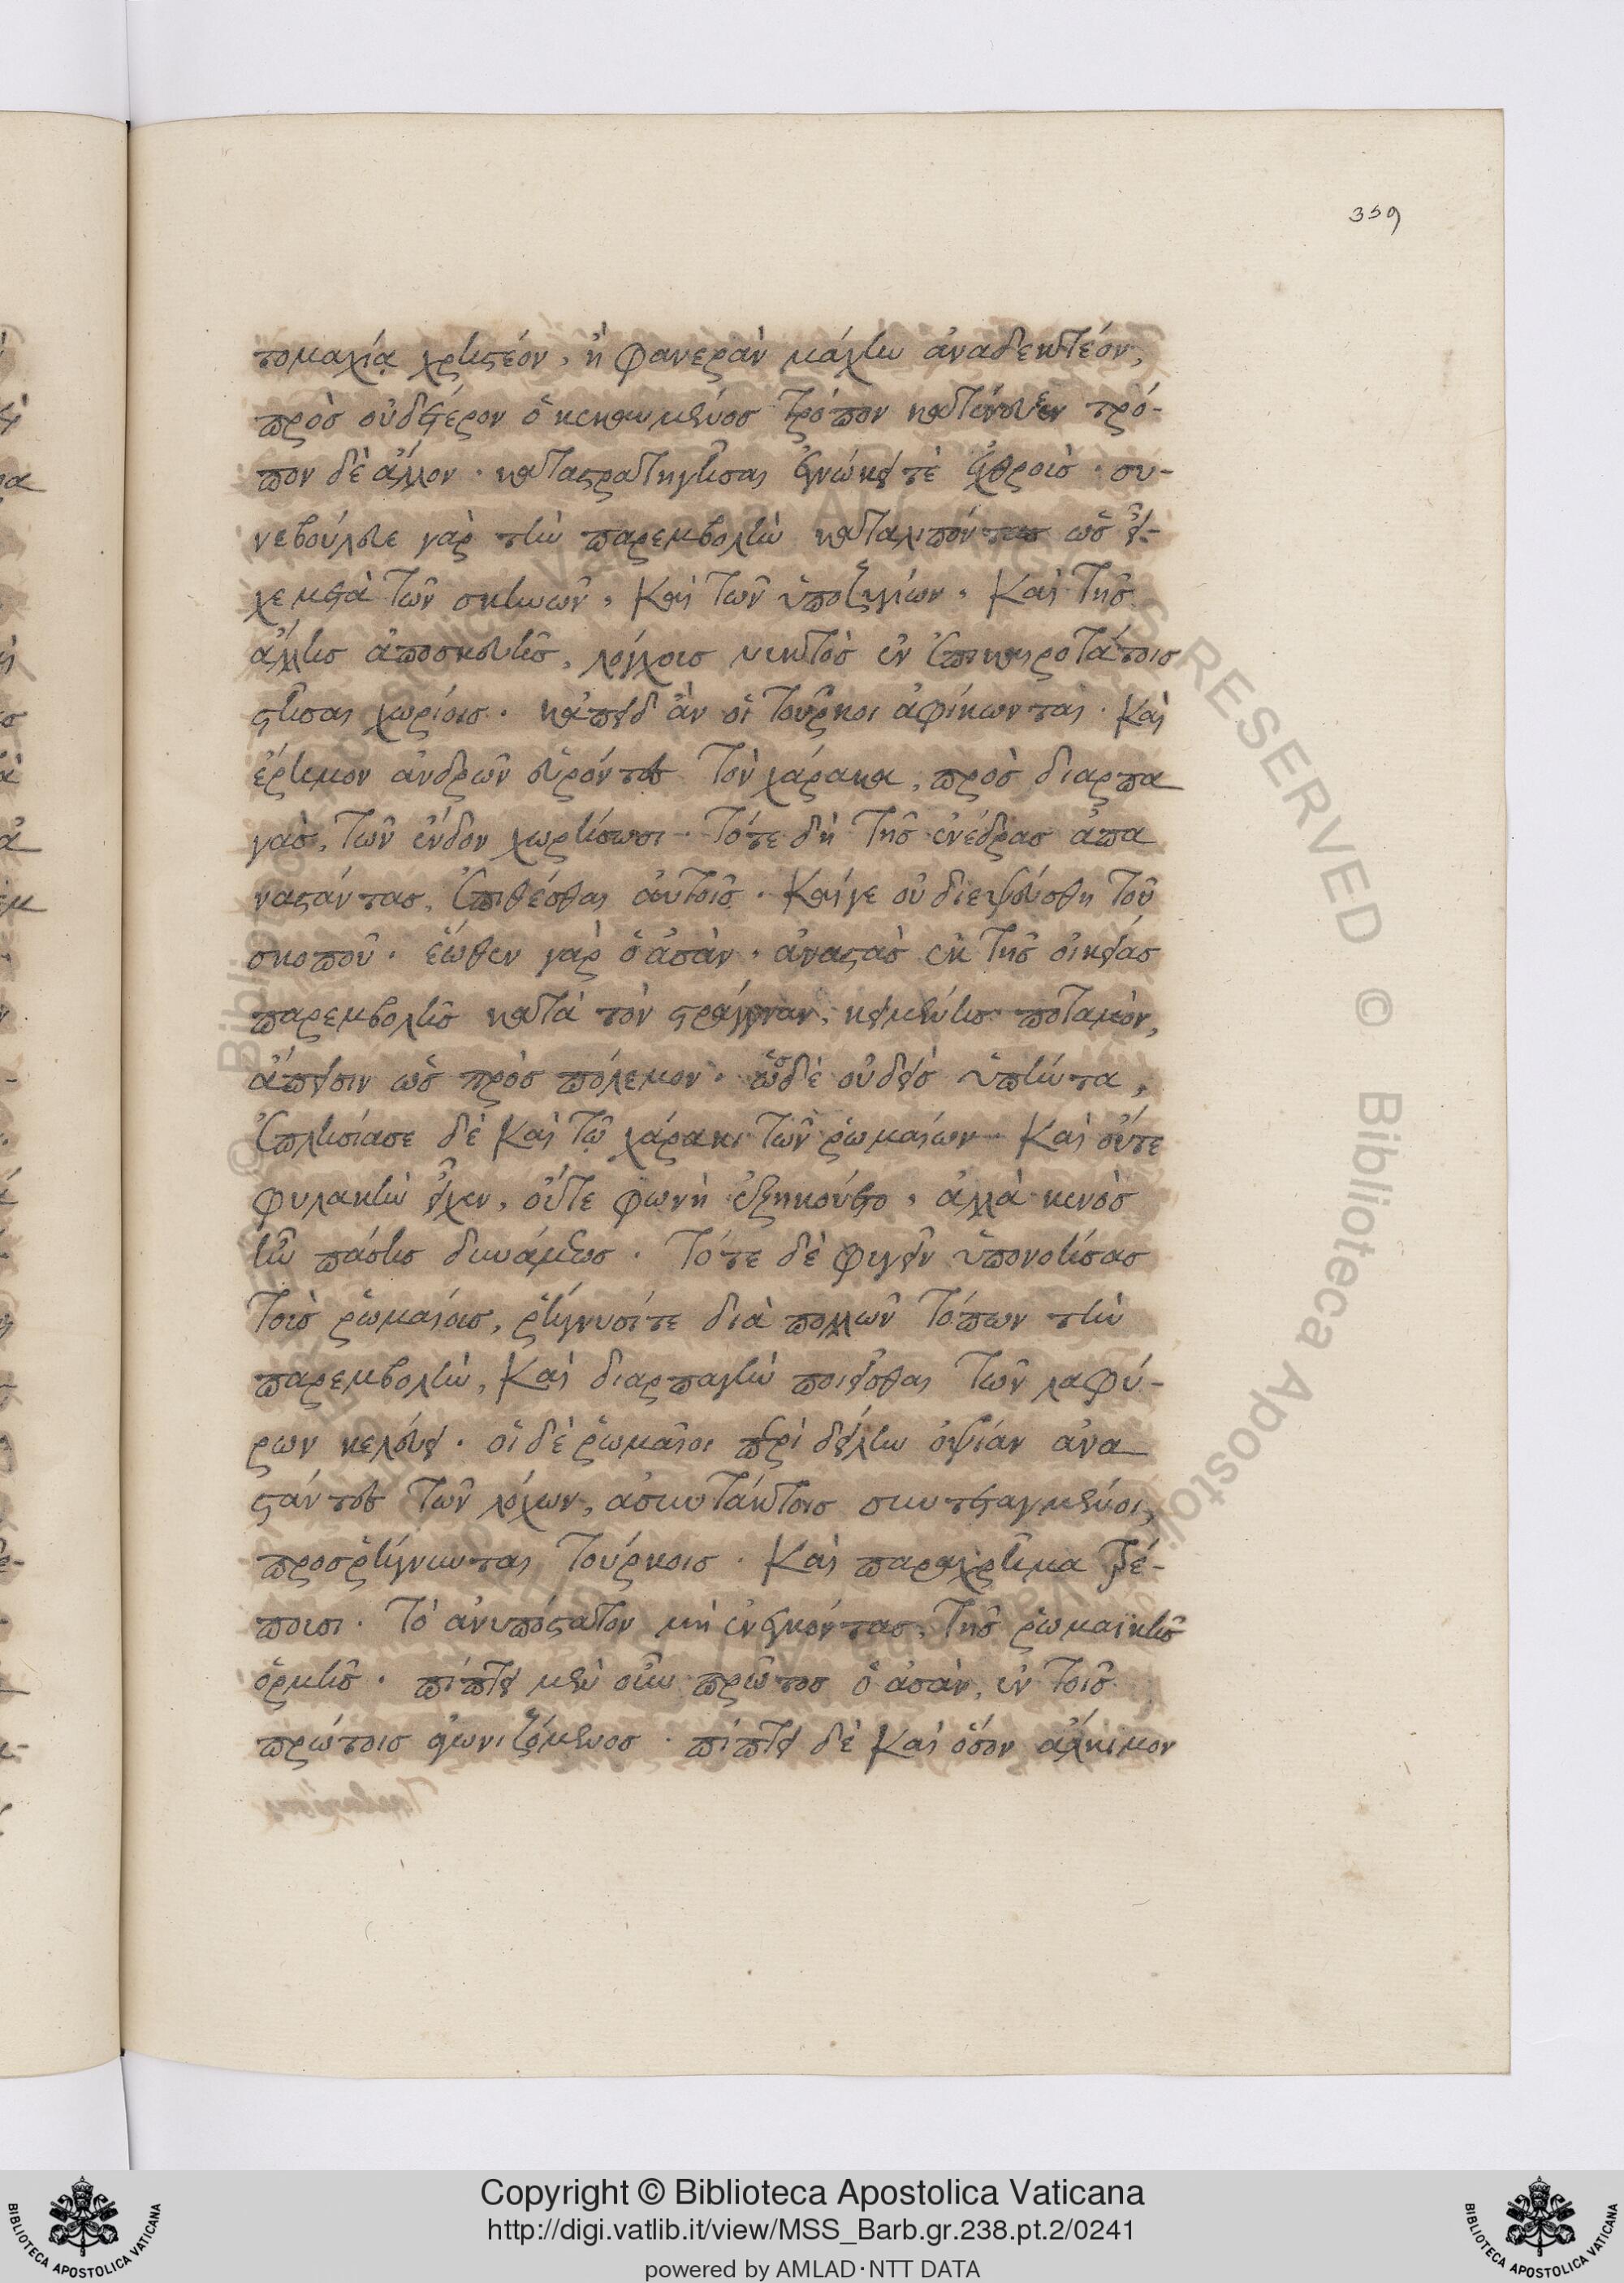 359
τομαχία χρηστέον, ἢ φανερὰν μάχην ἀναδεκτέον,
πρὸσ οὐδέτερον ὁ κεκαυμένοσ τρόπον κατένευσεν τρό-
πον δὲ ἄλλον · καταστρατηγῆσαι ἐγνώκει τὲ ἐχθροὶσ · συ-
νεβούλευε γὰρ τὴν παρεμβολὴν καταλιπόντασ ὡσ εἶ-
χε μετὰ τῶν σκηνῶν, καὶ τῶν ὑποζυγίων, καὶ τῆσ
ἄλλησ ἀποσκευῆσ, λόγχοισ νυκτὸσ ἐν ἐπικαιροτάτοισ
στῆσαι χωρίοισ · κἀπειδ' ἂν οἱ τοῦρκοι ἀφίκωνται · καὶ
ἔρημον ἀνδρῶν εὑρόντεσ τὸν χάρακα, πρὸσ διαρπα
γὰσ, τῶν ἔνδον χωρήσωσι · τότε δὴ τῆσ ἐνέδρασ ἀπα
ναστάντασ, ἐπιθέσθαι αὐτοῖσ · καίγε οὐ διεψεύσθη τοῦ
σκοποῦ · ἕωθεν γὰρ ὁ ἀσὰν · ἀναστὰσ ἐκ τῆσ οἰκείασ
παρεμβολῆσ κατὰ τὸν στράγναν, κειμένησ ποταμὸν,
ἄπεισιν ὡσ πρὸσ πόλεμον · ὡσ δὲ οὐδεὶσ ὑπήντα,
ἐπλησίασε δὲ καὶ τῷ χάρακι τῶν ῥωμαίων · καὶ οὔτε
φυλακὴν εἶχεν, οὔτε φωνὴ ἐξηκούετο, ἀλλὰ κενὸσ
ἦν πάσησ δυνάμεωσ · τότε δὲ φυγεῖν ὑπονοήσασ
τοὺσ ῥωμαίουσ, ῥήγνυσί τε διὰ πολλῶν τόπων τὴν
παρεμβολὴν, καὶ διαρπαγὴν ποιεῖσθαι τῶν λαφύ-
ρων κελεύει · οἱ δὲ ῥωμαῖοι περὶ δείλην ὀψίαν ἀνα
στάντεσ τῶν λόχων, ἀσυντάκτοισ συντεταγμένοι,
προσρήγνυνται τούρκοισ · καὶ παραχρῆμα τρέ-
πουσι · τὸ ἀνυπόστατον μὴ ἐνεγκόντασ, τῆσ ῥωμαϊκῆσ
ὁρμῆσ · πίπτει μὲν οὖν πρῶτοσ ὁ ἀσὰν, ἐν τοῖσ
πρώτοισ ἀγωνιζόμενοσ · πίπτει δὲ καὶ ὅσον ἄλκιμον
Copyright © Biblioteca Apostolica Vaticana
http://digi.vatlib.it/view/MSS_Barb.gr.238.pt.2/0241
powered by AMLAD·NTT DATA
BIBLIOTECA APOSTOLICA VATICANA
BIBLIOTECA APOSTOLICA VATICANA